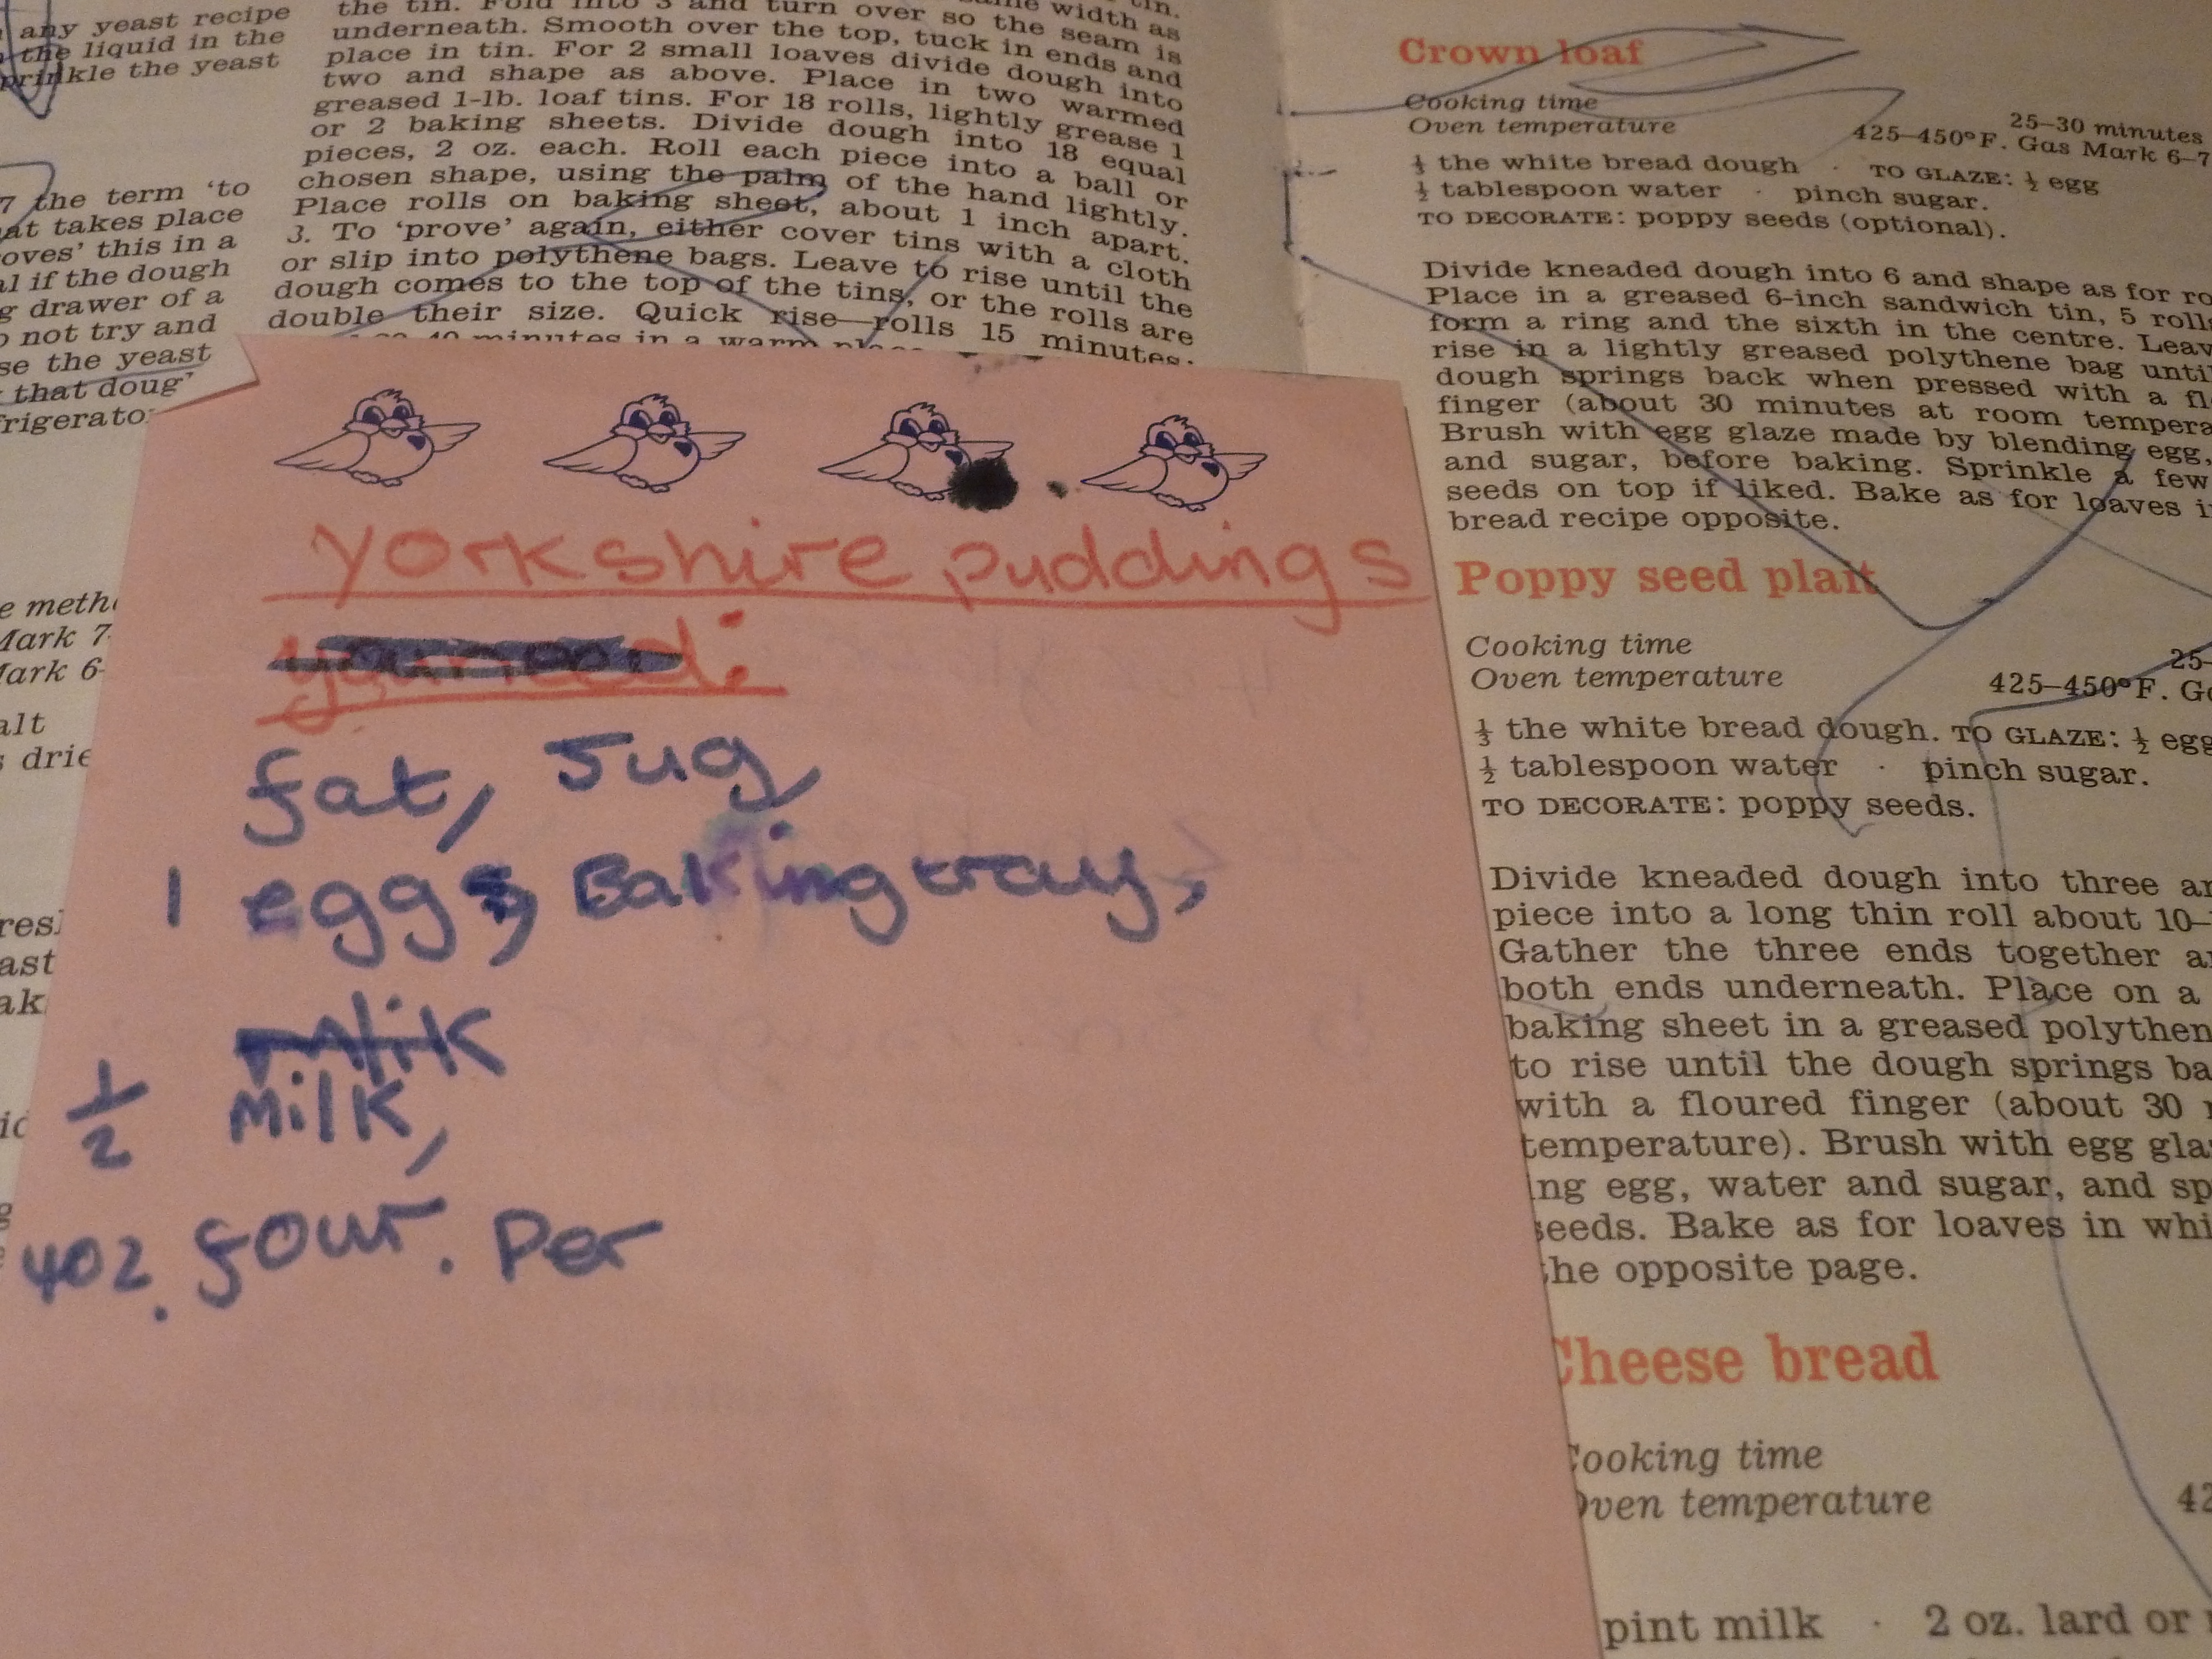 any yeast recipe
the liquid in the
sprinkle the yeast
7 the term 'to
at takes place
oves' this in a
al if the dough
g drawer of a
o not try and
se the yeast
that doug
frigerato
e meth
Mark 7
Mark 6
alt
s drie
the tin. Fold into 3 and turn over so the seam is
underneath. Smooth over the top, tuck in ends and
place in tin. For 2 small loaves divide dough into
two and shape as above. Place in two warmed
greased 1-lb. loaf tins. For 18 rolls, lightly grease 1
or 2 baking sheets. Divide dough into 18 equal
pieces, 2 oz. each. Roll each piece into a ball or
chosen shape, using the palm of the hand lightly.
Place rolls on baking sheet, about 1 inch apart.
3. To 'prove' again, either cover tins with a cloth
or slip into polythene bags. Leave to rise until the
dough comes to the top of the tins, or the rolls are
double their size. Quick rise—rolls 15 minutes;
40 minutes in a warm place
Yorkshire puddings
fat, Jug,
1 egg, Baking tray,
milk
½ Milk,
4oz. flour. Per
Crown loaf
Cooking time 25–30 minutes
Oven temperature 425–450°F. Gas Mark 6–7
⅓ the white bread dough · TO GLAZE: ½ egg
½ tablespoon water · pinch sugar.
TO DECORATE: poppy seeds (optional).
Divide kneaded dough into 6 and shape as for ro
Place in a greased 6-inch sandwich tin, 5 rolls
form a ring and the sixth in the centre. Leav
rise in a lightly greased polythene bag until
dough springs back when pressed with a fl
finger (about 30 minutes at room tempera
Brush with egg glaze made by blending egg,
and sugar, before baking. Sprinkle a few
seeds on top if liked. Bake as for loaves i
bread recipe opposite.
Poppy seed plait
Cooking time 25–
Oven temperature 425–450°F. G
⅓ the white bread dough. TO GLAZE: ½ egg
½ tablespoon water · pinch sugar.
TO DECORATE: poppy seeds.
Divide kneaded dough into three a
piece into a long thin roll about 10–
Gather the three ends together a
both ends underneath. Place on a
baking sheet in a greased polythen
to rise until the dough springs ba
with a floured finger (about 30
temperature). Brush with egg gla
ing egg, water and sugar, and sp
seeds. Bake as for loaves in whi
the opposite page.
Cheese bread
Cooking time
Oven temperature 42
pint milk · 2 oz. lard or